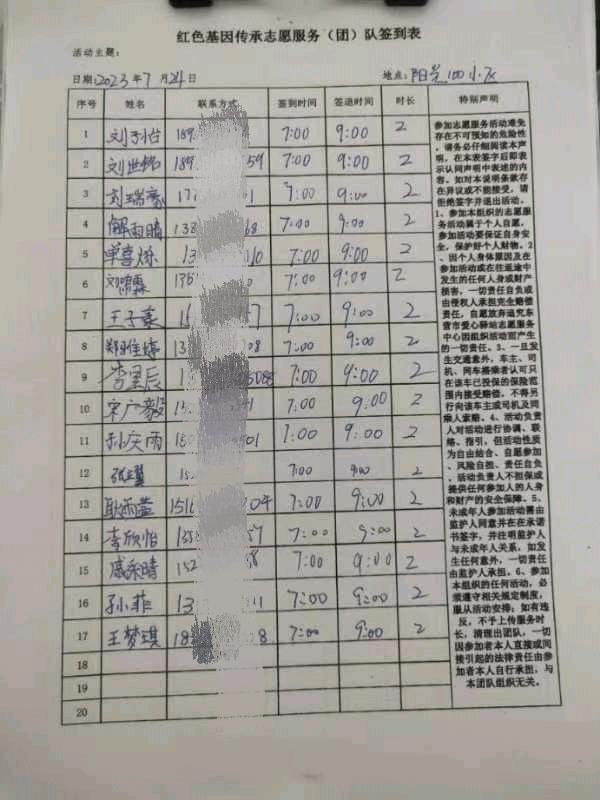 红色基因传承志愿服务（团）队签到表
活动主题：
日期:2023年7月24日 地点:阳光100小区
序号 姓名 联系方式 签到时间 签退时间 时长 特别声明
1 刘子怡 189 7:00 9:00 2
2 刘世锦 189 59 7:00 9:00 2
3 刘瑞 17 1 7:00 9:00 2
4 解雨晴 138 68 7:00 9:00 2
5 单喜烁 13 010 7:00 9:00 2
6 刘霖 135 0 7:00 9:00 2
7 王子 15 7 7:00 9:00 2
8 郑佳婷 13 08 7:00 9:00 2
9 李星辰 1 508 7:00 9:00 2
10 宋广毅 15 41 7:00 9:00 2
11 孙庆雨 150 601 7:00 9:00 2
12 张 15 7:00 9:00 2
13 耿雨萱 1516 04 7:00 9:00 2
14 李欣怡 135 57 7:00 9:00 2
15 晴 152 8 7:00 9:00 2
16 孙菲 13 11 7:00 9:00 2
17 王梦琪 18 8 7:00 9:00 2
18
19
20
参加志愿服务活动难免
存在不可预知的危险性
，请务必仔细阅读本声
明，在本表签字后即表
示认同声明中表述的内
容。如对本说明条款存
在异议或不能接受，请
拒绝签字并退出活动。
1、参加本组织的志愿服
务活动属于个人自愿，
参加活动要保证自身安
全，保护好个人财物。2
、因个人身体原因及在
参加活动或在往返途中
发生的任何人身或财产
损害，一切责任自负或
由侵权人承担完全赔偿
责任，自愿放弃追究东
营市爱心驿站志愿服务
中心因组织活动而产生
的一切责任。3、一旦发
生交通意外，车主、司
机、同车搭乘者认可只
在该车已投保的保险范
围内接受赔偿，不得另
行向该车主或司机及同
乘人索赔。4、活动负责
人对活动进行协调、联
络、指引，但活动性质
为自由结合、自愿参加
、风险自担、责任自负
，活动负责人不担保或
提供任何参加人的人身
和财产的安全保障。5、
未成年人参加活动需由
监护人同意并在在承诺
书签字，并注明监护人
与未成年人关系，如发
生任何意外，一切责任
由监护人承担。6、参加
本组织的任何活动，必
须遵守相关规定制度，
服从活动安排；如有违
反，不予上传服务时
长，清理出团队，一切
因参加者本人直接或间
接引起的法律责任由参
加者本人自行承担，与
本团队组织无关。